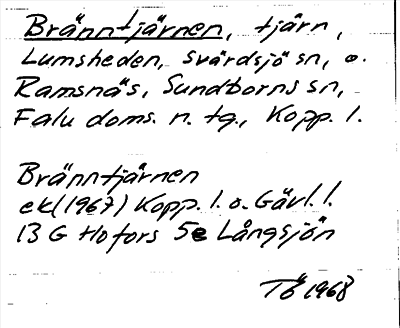 Bränntjärnen, tjärn,
Lumsheden, Svärdsjö sn, o.
Ramsnäs, Sundborns sn,
Falu doms. n. tg., Kopp. l.
Bränntjärnen
ek (1967) Kopp. l. o. Gävl. l.
13 G Hofors 5e Långsjön
TÖ 1968